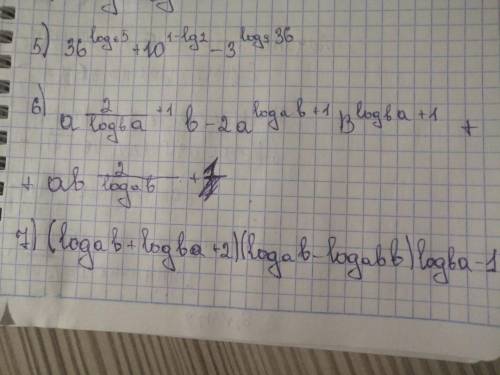 5) 36^{log_6 5} + 10^{1-lg2} - 3^{log_9 36}
6) a^{\frac{2}{log_b a} + 1} b - 2a^{log_a b + 1} b^{log_b a + 1} +
+ ab^{\frac{2}{log_a b} + 1}
7) (log_a b + log_b a + 2)(log_a b - log_{ab} b) log_b a - 1